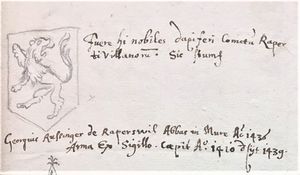 Fuere hi nobiles dapiferi Comitũ Raper
ti Villanorũ. Sic
Georgius Russinger de Rapersvil Abbas in Mure Aº. 1436
Arma Ex Sigillo. Coepit Aº. 1410 1439.